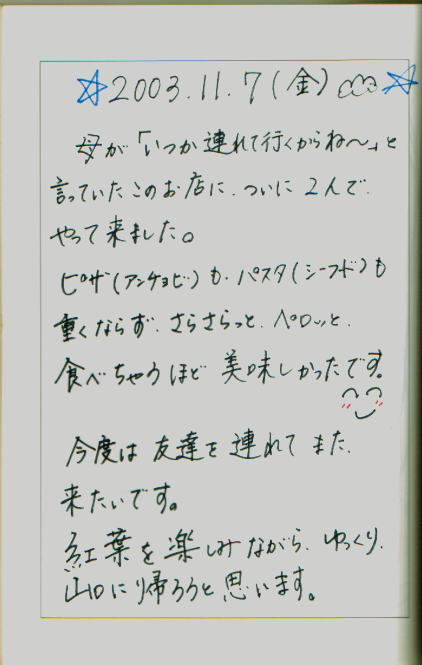 ☆2003.11.7(金)☆
母が「いつか連れて行くからね〜」と
言っていたこのお店に、ついに2人で、
やって来ました。
ピザ(アンチョビ)も、パスタ(シーフード)も
重くならず、さらさらっと、ペロッと、
食べちゃうほど 美味しかったです。
今度は 友達を 連れて また、
来たいです。
紅葉を楽しみながら、ゆっくり、
山口に帰ろうと思います。